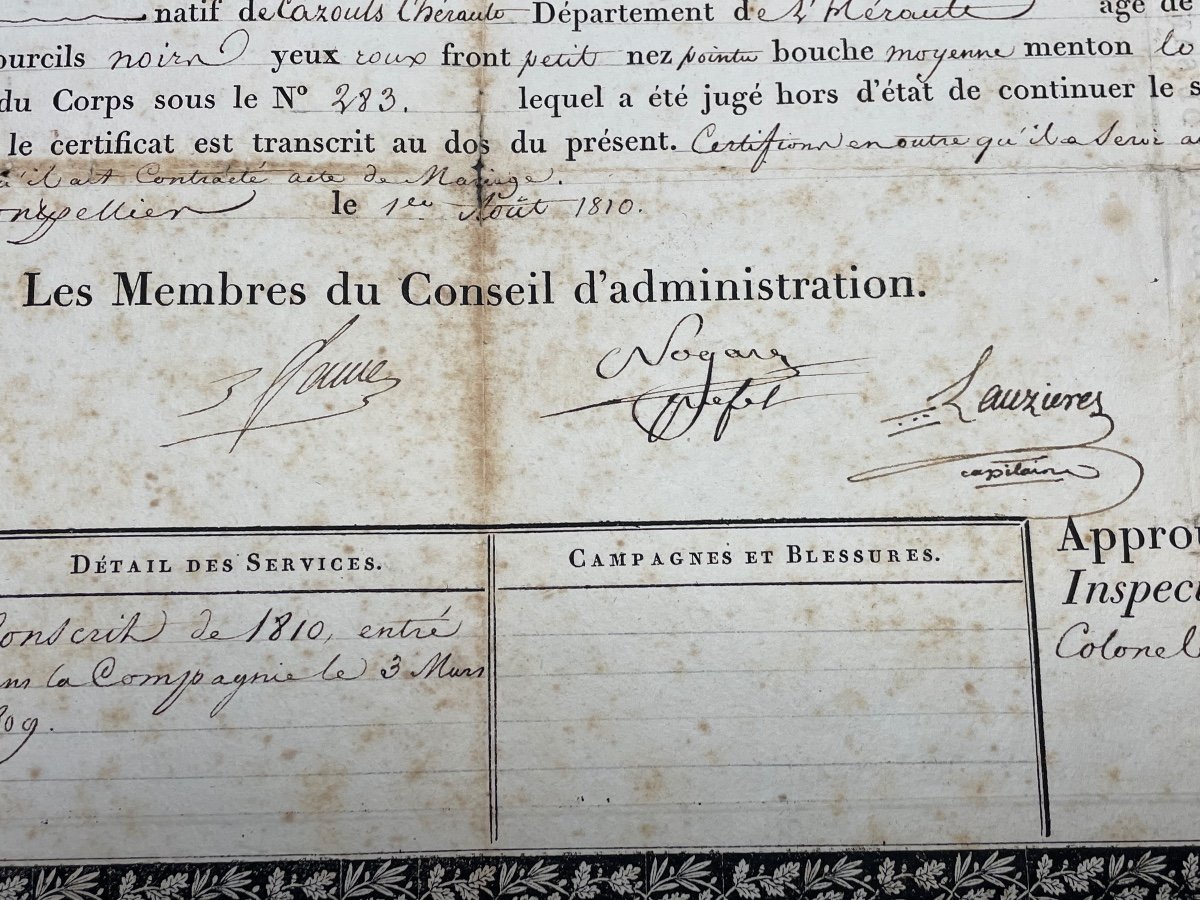 natif de Cazouls l'hérault Département de L'hérault âgé de
ourcils noirs yeux roux front petit nez pointu bouche moyenne menton
du Corps sous le Nº 283. lequel a été jugé hors d'état de continuer le s
le certificat est transcrit au dos du présent. Certifions en outre qu'il a Servi a
u'il ait Contracté acte de Mariage.
ontpellier le 1er Août 1810.
Les Membres du Conseil d'administration.
Nogaret
préfet
Lauzieres
capitaine
DÉTAIL DES SERVICES.
CAMPAGNES ET BLESSURES.
Approu
Inspec
Colonel
onscrit de 1810, entré
ans la Compagnie le 3 Mars
809.